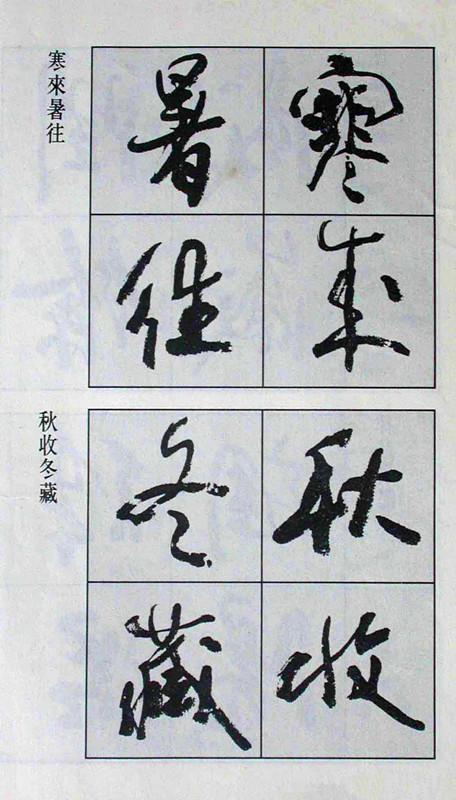 寒來
暑往
寒來暑往
秋收
冬藏
秋收冬藏